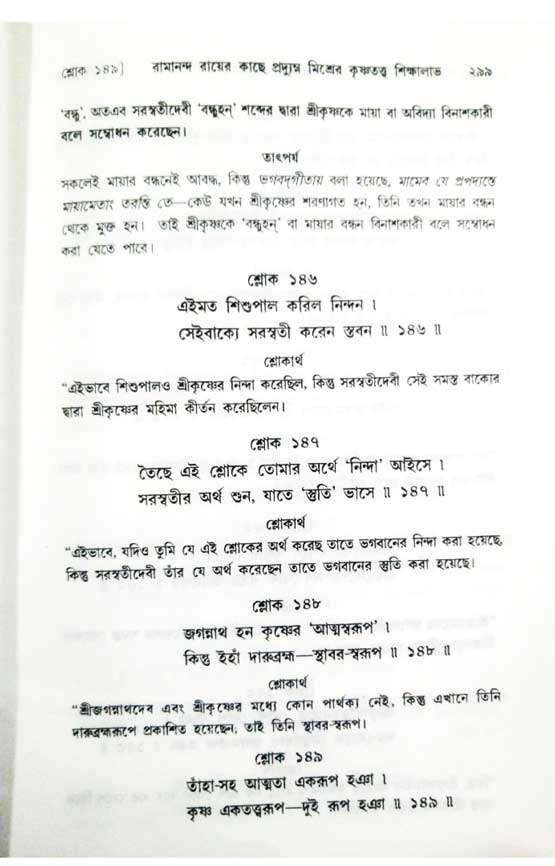 শ্লোক ১৪৯] রামানন্দ রায়ের কাছে প্রদ্যুম্ন মিশ্রের কৃষ্ণতত্ত্ব শিক্ষালাভ ২৯৯
‘বন্ধু’, অতএব সরস্বতীদেবী ‘বন্ধুহন্’ শব্দের দ্বারা শ্রীকৃষ্ণকে মায়া বা অবিদ্যা বিনাশকারী
বলে সম্বোধন করেছেন।
তাৎপর্য
সকলেই মায়ার বন্ধনেই আবদ্ধ, কিন্তু ভগবদ্‌গীতায় বলা হয়েছে, মামেব যে প্রপদ্যন্তে
মায়ামেতাং তরন্তি তে—কেউ যখন শ্রীকৃষ্ণের শরণাগত হন, তিনি তখন মায়ার বন্ধন
থেকে মুক্ত হন। তাই শ্রীকৃষ্ণকে ‘বন্ধুহন্’ বা মায়ার বন্ধন বিনাশকারী বলে সম্বোধন
করা যেতে পারে।
শ্লোক ১৪৬
এইমত শিশুপাল করিল নিন্দন ।
সেইবাক্যে সরস্বতী করেন স্তবন ॥ ১৪৬ ॥
শ্লোকার্থ
“এইভাবে শিশুপালও শ্রীকৃষ্ণের নিন্দা করেছিল, কিন্তু সরস্বতীদেবী সেই সমস্ত বাক্যের
দ্বারা শ্রীকৃষ্ণের মহিমা কীর্তন করেছিলেন।
শ্লোক ১৪৭
তৈছে এই শ্লোকে তোমার অর্থে ‘নিন্দা’ আইসে ।
সরস্বতীর অর্থ শুন, যাতে ‘স্তুতি’ ভাসে ॥ ১৪৭ ॥
শ্লোকার্থ
“এইভাবে, যদিও তুমি যে এই শ্লোকের অর্থ করেছ তাতে ভগবানের নিন্দা করা হয়েছে,
কিন্তু সরস্বতীদেবী তাঁর যে অর্থ করেছেন তাতে ভগবানের স্তুতি করা হয়েছে।
শ্লোক ১৪৮
জগন্নাথ হন কৃষ্ণের ‘আত্মস্বরূপ’ ।
কিন্তু ইহাঁ দারুব্রহ্ম—স্থাবর-স্বরূপ ॥ ১৪৮ ॥
শ্লোকার্থ
“শ্রীজগন্নাথদেব এবং শ্রীকৃষ্ণের মধ্যে কোন পার্থক্য নেই, কিন্তু এখানে তিনি
দারুব্রহ্মরূপে প্রকাশিত হয়েছেন, তাই তিনি স্থাবর-স্বরূপ।
শ্লোক ১৪৯
তাঁহা-সহ আত্মতা একরূপ হঞা ।
কৃষ্ণ একতত্ত্বরূপ—দুই রূপ হঞা ॥ ১৪৯ ॥